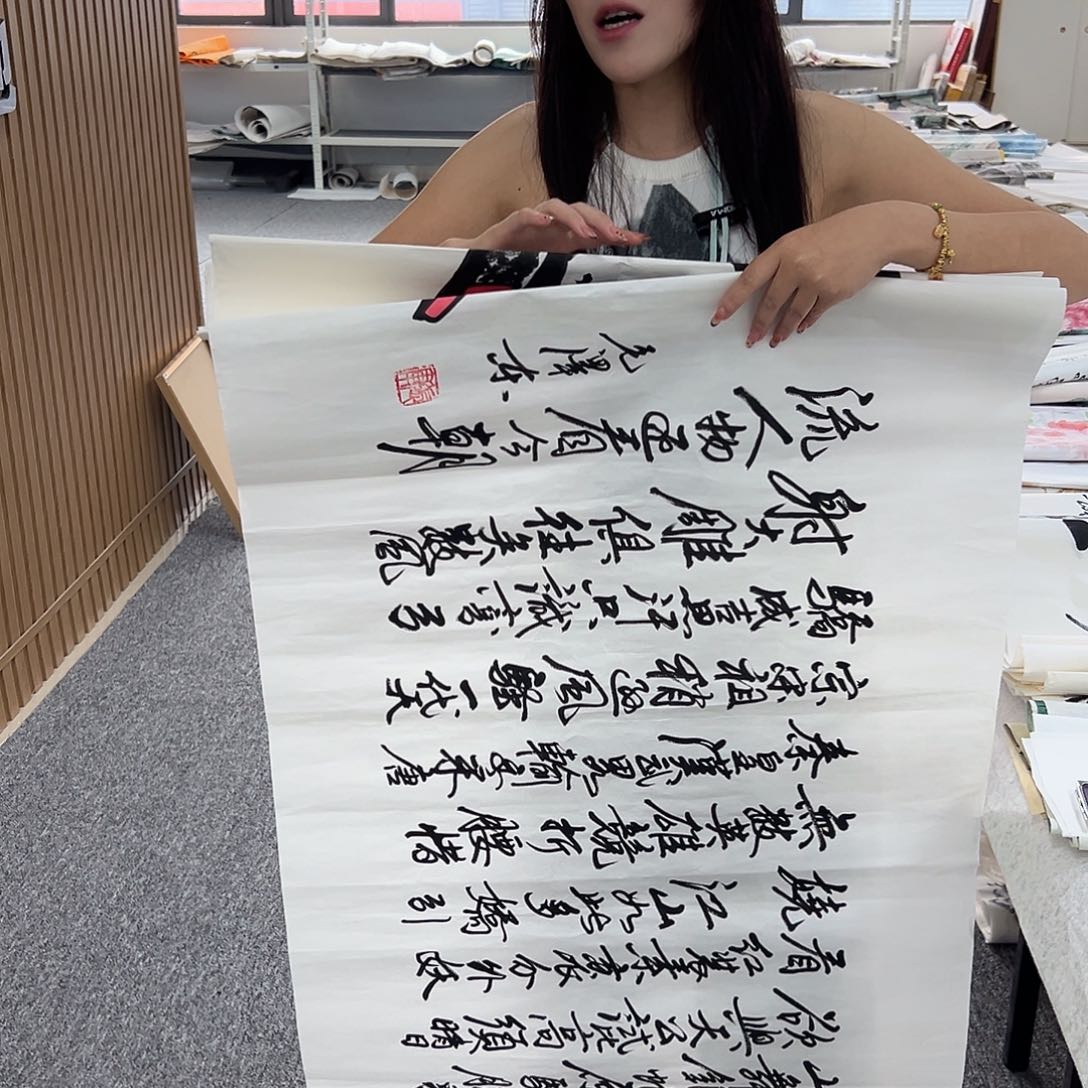 山舞銀蛇原馳
欲與天公試比高須晴日
看紅裝素裹分外妖
嬈江山如此多嬌引
無數英雄競折腰惜
秦皇漢武略輸文采唐
宗宋祖稍遜風騷一代天
驕成吉思汗只識彎弓
射大雕俱往矣數風
流人物還看今朝
毛澤東